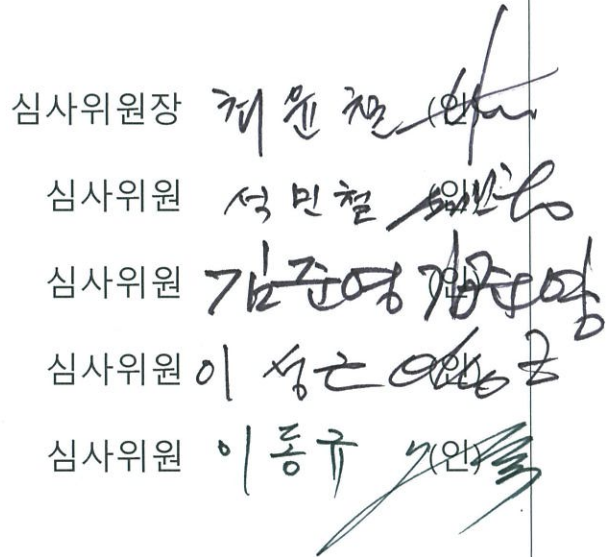 심사위원장 최윤철 (인)
심사위원 석민철 (인)
심사위원 김준영 (인) 김준영
심사위원 이성근 (인)
심사위원 이동규 (인)